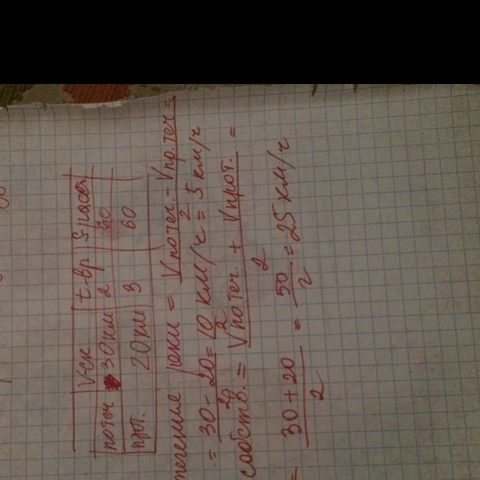 V ск t вр S расс
по теч 30 км 2 60
пр.т. 20 км 3 60
течение реки = V по теч. - V пр.теч / 2 =
= 30 - 20 / 2 = 10 км/ч / 2 = 5 км/ч
собств. = V по теч + V прот. / 2 =
= 30 + 20 / 2 = 50 / 2 = 25 км/ч